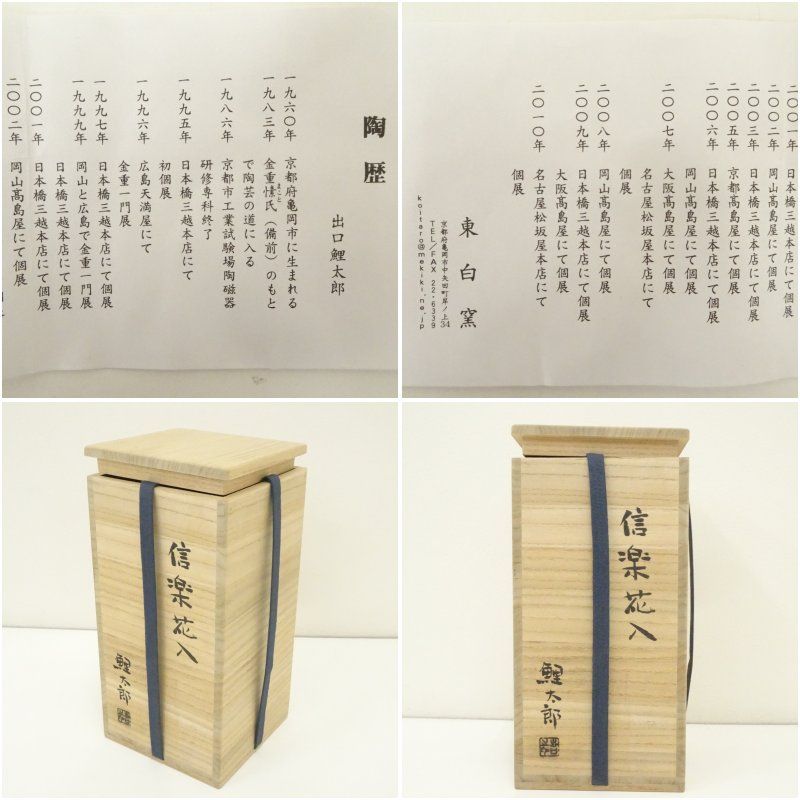 陶歴
出口鯉太郎
一九六〇年 京都府亀岡市に生まれる
一九八三年 金重愫氏（備前）のもと
で陶芸の道に入る
一九八六年 京都市工業試験場陶磁器
研修専科終了
一九九五年 日本橋三越本店にて
初個展
一九九六年 広島天満屋にて
金重一門展
一九九七年 日本橋三越本店にて個展
一九九九年 岡山と広島で金重一門展
日本橋三越本店にて個展
二〇〇一年 日本橋三越本店にて個展
二〇〇二年 岡山髙島屋にて個展
二〇〇一年 日本橋三越本店にて個展
二〇〇二年 岡山髙島屋にて個展
二〇〇三年 日本橋三越本店にて個展
二〇〇五年 京都髙島屋にて個展
二〇〇六年 日本橋三越本店にて個展
岡山髙島屋にて個展
二〇〇七年 大阪髙島屋にて個展
名古屋松坂屋本店にて
個展
二〇〇八年 岡山髙島屋にて個展
二〇〇九年 日本橋三越本店にて個展
大阪髙島屋にて個展
二〇一〇年 名古屋松坂屋本店にて
個展
東白窯
京都府亀岡市中矢田町岸ノ上34
TEL/FAX 22-6339
koitaro@mekiki.ne.jp
信楽花入
鯉太郎
信楽花入
鯉太郎